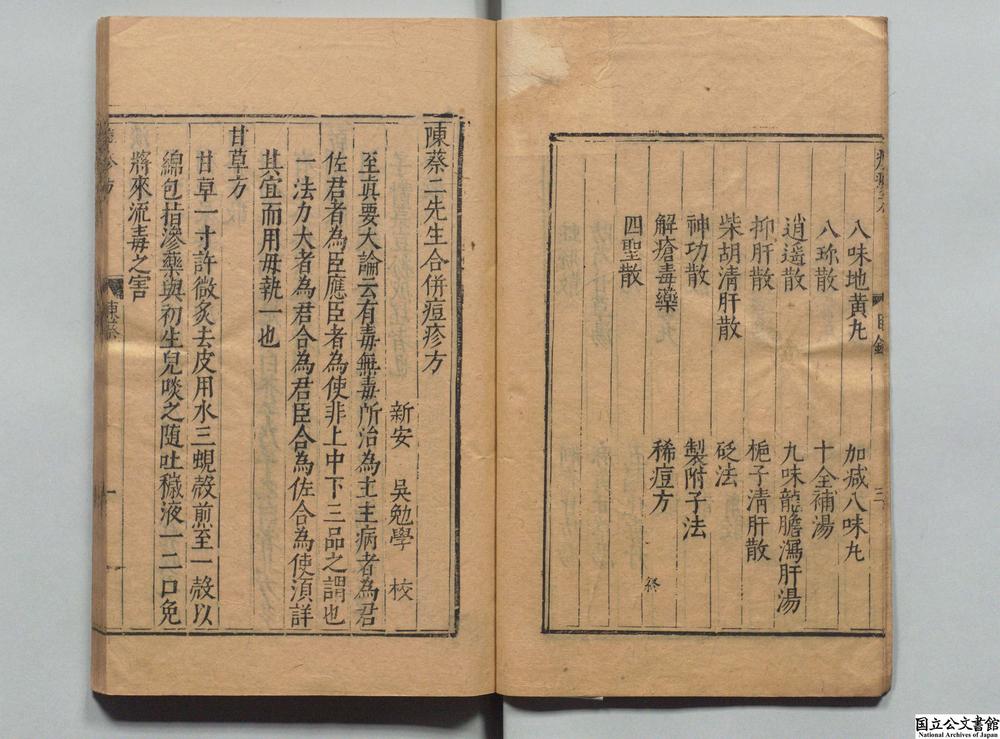 八味地黄丸　加减八味丸
八珎散　十全補湯
逍遥散　九味龍膽瀉肝湯
抑肝散　梔子清肝散
柴胡清肝散　砭法
神功散　製附子法
解瘡毒藥　稀痘方
四聖散　終
目錄　三
陳蔡二先生合併痘疹方
新安　吳勉學　校
至眞要大論云有毒無毒所治為主主病者為君
佐君者為臣應臣者為使非上中下三品之謂也
一法力大者為君合為君臣合為佐合為使須詳
其宜而用毋執一也
甘草方
甘草一寸許微炙去皮用水三蜆殼煎至一殼以
綿包指滲藥與初生兒啖之随吐穢液一二口免
將來流毒之害
国立公文書館
National Archives of Japan